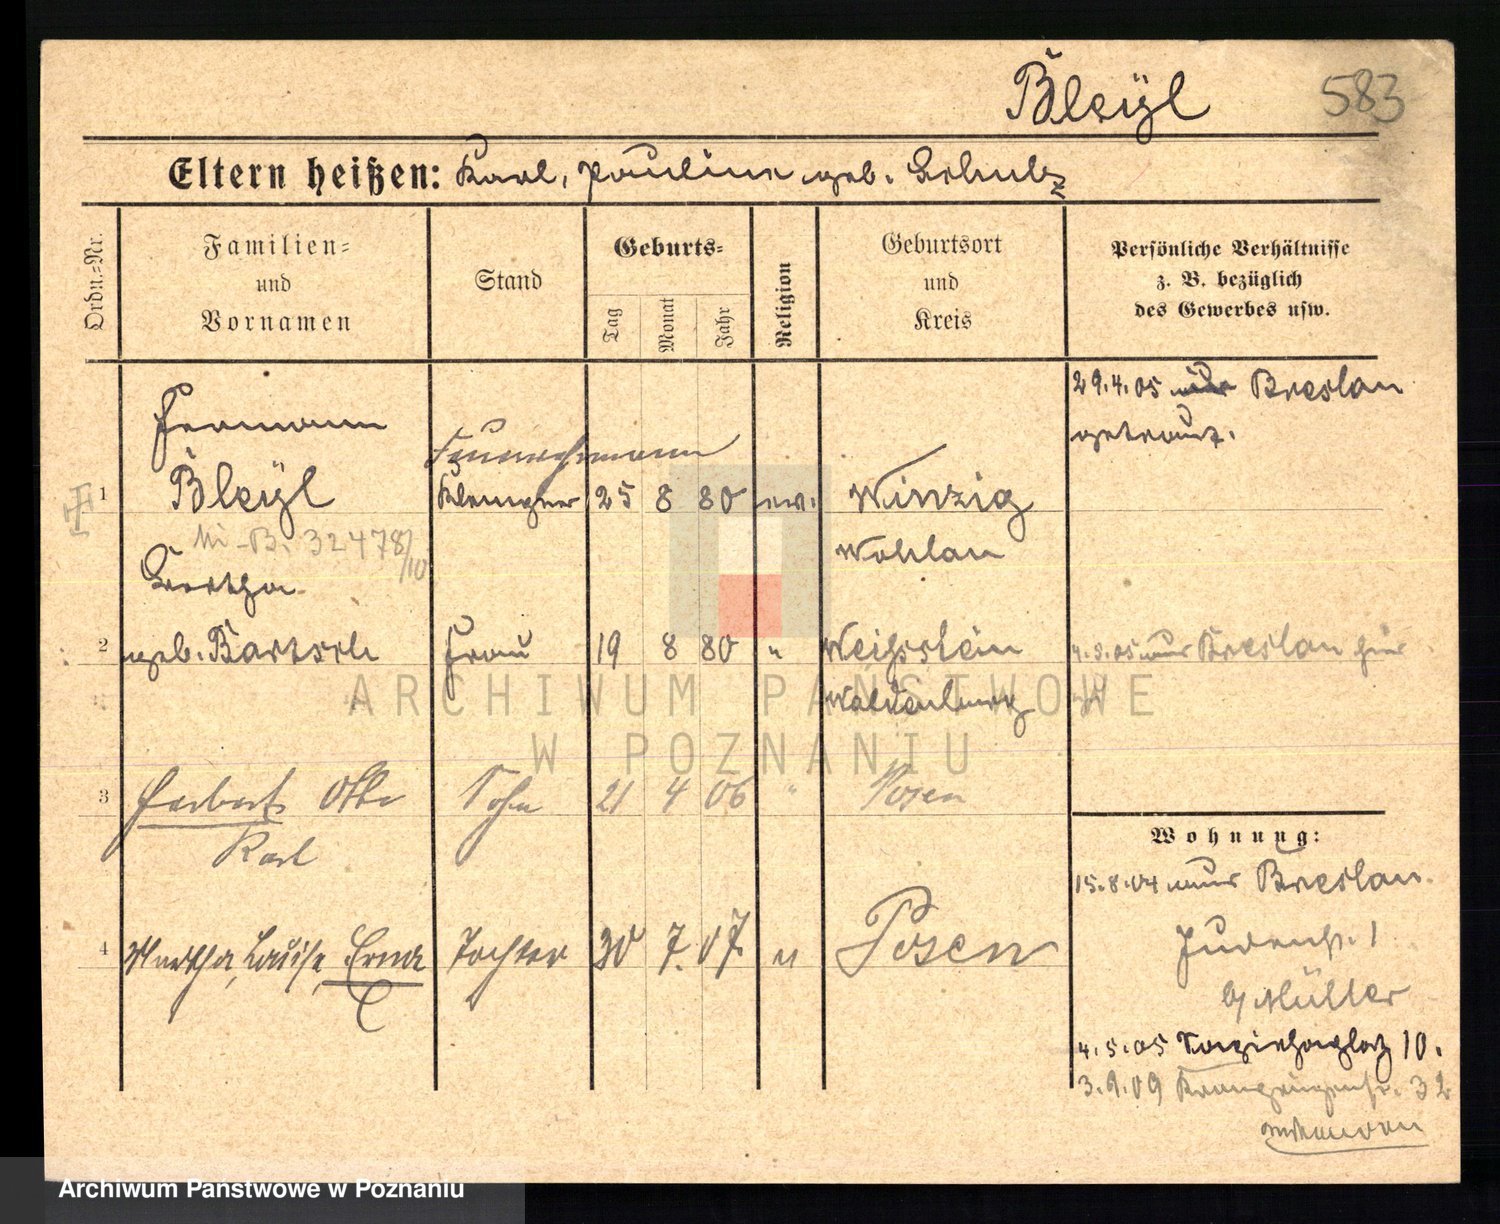 Bleÿl 583
Eltern heißen: Karl, Pauline geb. Schulz
Ordn.=Nr.
Familien=
und
Vornamen
Stand
Geburts=
Tag
Monat
Jahr
Religion
Geburtsort
und
Kreis
Persönliche Verhältnisse
z. B. bezüglich
des Gewerbes usw.
29.4.05 Breslau
getraut.
Hermann
Feuerwehrmann
1 Bleÿl Klempner 25 8 80 ev. Winzig
32478/10
Wohlau
Bertha
2 geb. Bartsch Frau 19 8 80 " Weißstein
4.5.05 aus Breslau hier
Waldenburg
ARCHIWUM PAŃSTWOWE
W POZNANIU
3 Herbert Otto Sohn 21 4 06 " Posen
Karl
4 Martha, Luise, Erna Tochter 30 7. 07. " Posen
Wohnung:
15.8.04 aus Breslau.
Judenstr. 1
b/ Müller
4.5.05 Sapiehaplatz 10.
3.9.09 Kronprinzenstr. 32
Archiwum Państwowe w Poznaniu